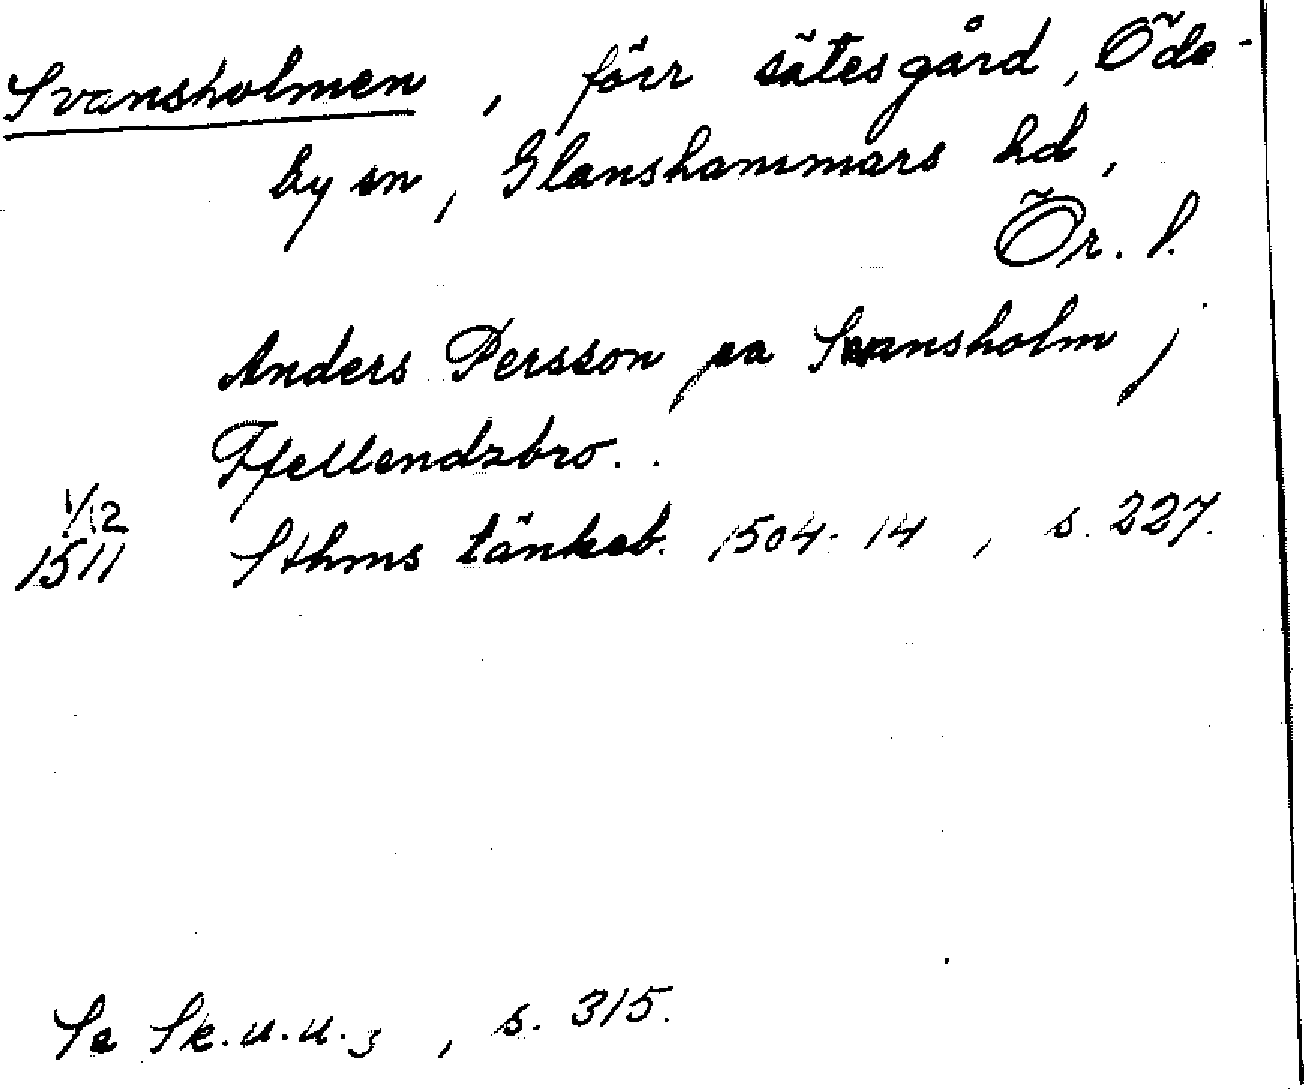 Svansholmen, förr sätesgård, Öde-
by sn, Glanshammars hd,
Ör. l.
Anders Persson pa Svansholm j
Ffellendzbro..
1/12 1511 Sthms tänkeb. 1504-14, s. 227.
Se Sk.u.u.3, s. 315.